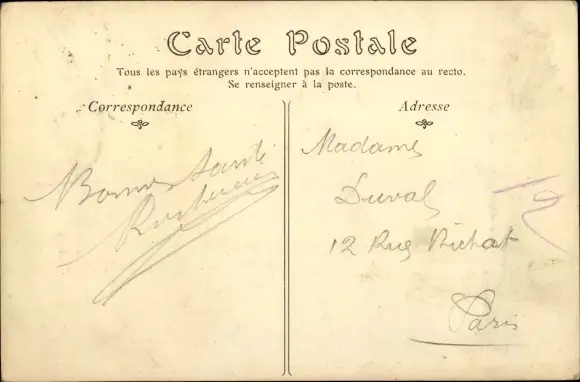 Carte Postale
Tous les pays étrangers n'acceptent pas la correspondance au recto.
Se renseigner à la poste.
Correspondance
Bonne Santé
Adresse
Madame
Duval
12 Rue Bichat
Paris